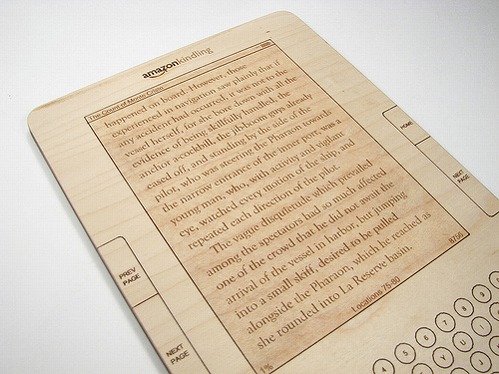 amazonkindling
The Count of Monte Cristo
happened on board. However, those
experienced in navigation saw plainly that if
any accident had occurred, it was not to the
vessel herself, for she bore down with all the
evidence of being skilfully handled, the
anchor a-cockbill, the jib-boom guys already
eased off, and standing by the side of the
pilot, who was steering the Pharaon towards
the narrow entrance of the inner port, was a
young man, who, with activity and vigilant
eye, watched every motion of the ship, and
repeated each direction of the pilot.
The vague disquietude which prevailed
among the spectators had so much affected
one of the crowd that he did not await the
arrival of the vessel in harbor, but jumping
into a small skiff, desired to be pulled
alongside the Pharaon, which he reached as
she rounded into La Reserve basin.
1%
Locations 75-80
8756
HOME
NEXT
PAGE
PREV
PAGE
NEXT
PAGE
4 5 6 7 8 9
Y U